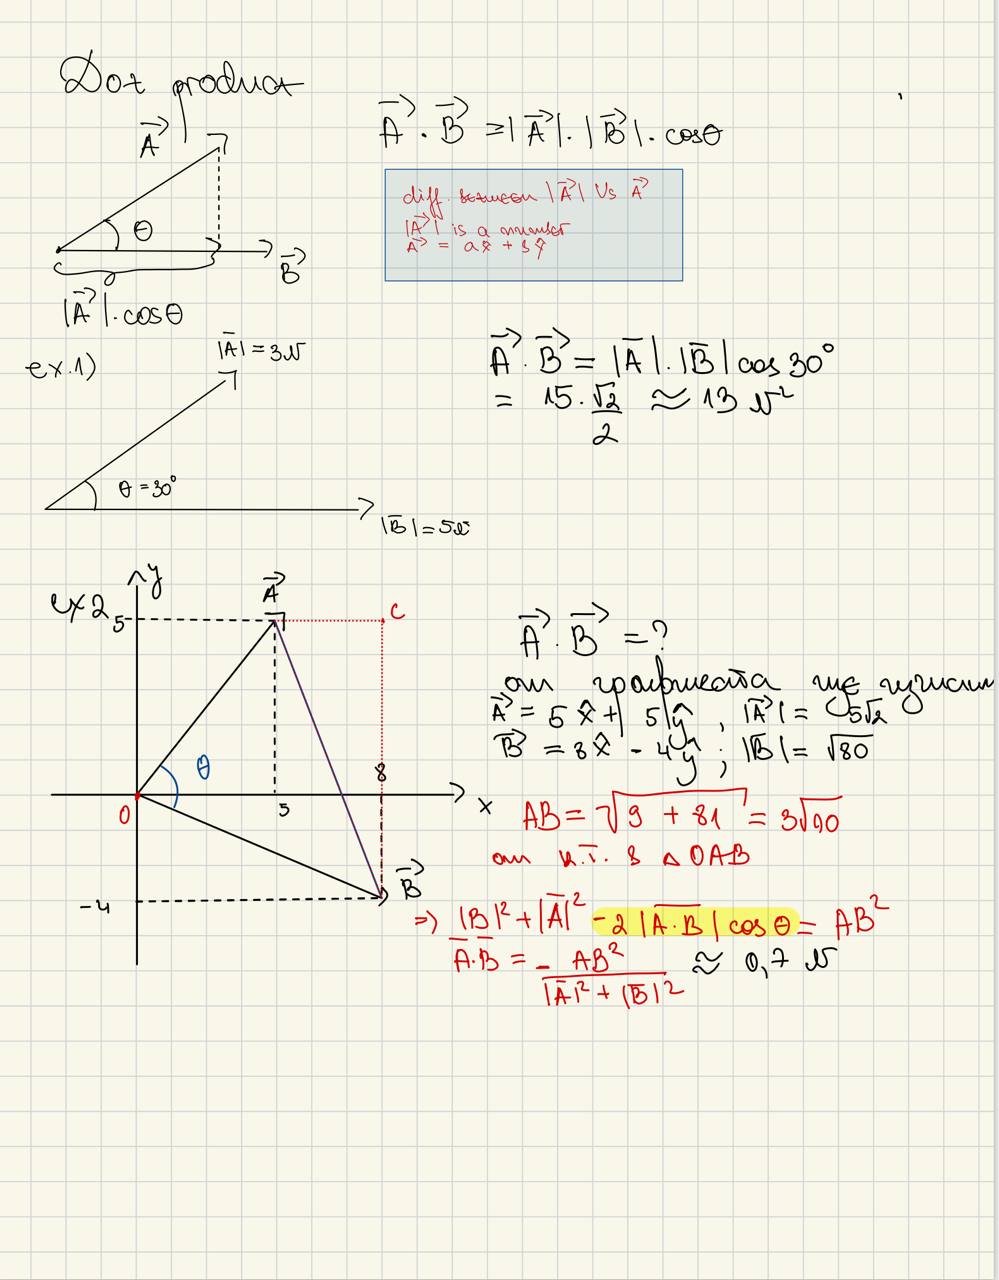 Dot product
A B
θ
|A|.cosθ
A . B = |A|.|B|.cosθ
diff. between |A| Vs A
|A| is a number
A = ax̂ + bŷ
ex.1)
|A| = 3N
θ = 30°
|B| = 5N
A . B = |A|.|B| cos 30°
= 15.√2/2 ≈ 13 N²
ex2
y
A
5
C
θ
8
O
5
x
-4
B
A . B = ?
от графиката ще
A = 5x̂ + 5ŷ , |A| = 5√2
B = 8x̂ - 4ŷ ; |B| = √80
AB = √9 + 81 = 3√90
от к.т. в △ OAB
⇒ |B|² + |A|² - 2 |A.B| cos θ = AB²
A.B = - AB²/|A|² + |B|² ≈ 0,7 N